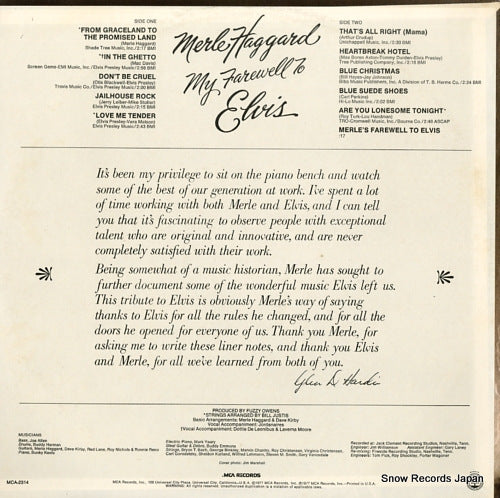 SIDE ONE
*FROM GRACELAND TO
THE PROMISED LAND
(Merle Haggard)
Shade Tree Music, Inc./
*†IN THE GHETTO
(Mac Davis)
Screen Gems-EMI Music, Inc./Elvis Presley Music/2:56 BMI
DON'T BE CRUEL
(Otis Blackwell-Elvis Presley)
Travis Music Co./Elvis Presley Music/2:00 BMI
JAILHOUSE ROCK
(Jerry Leiber-Mike Stoller)
Elvis Presley Music/2:15 BMI
*LOVE ME TENDER
(Elvis Presley-Vera Matson)
Elvis Presley Music/2:43 BMI
Merle Haggard
My Farewell To
Elvis
SIDE TWO
THAT'S ALL RIGHT (Mama)
(Arthur Crudup)
Unichappell Music, Inc./2:30 BMI
HEARTBREAK HOTEL
(Mae Boren Axton-Tommy Durden-Elvis Presley)
Tree Publishing Company, Inc./
BLUE CHRISTMAS
(Bill Hayes-Jay Johnson)
Bibo Music Publishers, Inc. A Division of T. B. Harms Co./2:34 BMI
BLUE SUEDE SHOES
(Carl Perkins)
Hi-Lo Music Inc./2:02 BMI
ARE YOU LONESOME TONIGHT*
(Roy Turk-Lou Handman)
TRO-Cromwell Music, Inc./Bourne Co./2:48 ASCAP
MERLE'S FAREWELL TO ELVIS
:17
It's been my privilege to sit on the piano bench and watch
some of the best of our generation at work. I've spent a lot
of time working with both Merle and Elvis, and I can tell
you that it's fascinating to observe people with exceptional
talent who are original and innovative, and are never
completely satisfied with their work.
Being somewhat of a music historian, Merle has sought to
further document some of the wonderful music Elvis left us.
This tribute to Elvis is obviously Merle's way of saying
thanks to Elvis for all the rules he changed, and for all the
doors he opened for everyone of us. Thank you Merle, for
asking me to write these liner notes, and thank you Elvis
and Merle, for all we've learned from both of you.
Glen D. Hardin
PRODUCED BY FUZZY OWENS
*STRINGS ARRANGED BY BILL JUSTIS
Basic Arrangements: Merle Haggard & Dave Kirby
Vocal Accompaniment: Jordanaires
(†Vocal Accompaniment: Dottie De Leonibus & Laverna Moore
MUSICIANS
Bass, Joe Allen
Drums, Buddy Harman
Guitars, Merle Haggard, Dave Kirby, Red Lane, Roy Nichols & Ronnie Reno
Piano, Bunky Keels
Electric Piano, Mark Yeary
Steel Guitar & Dobro, Buddy Emmons
Cover photo: Jim Marshall
MCA-2314
MCA RECORDS
Snow Records Japan